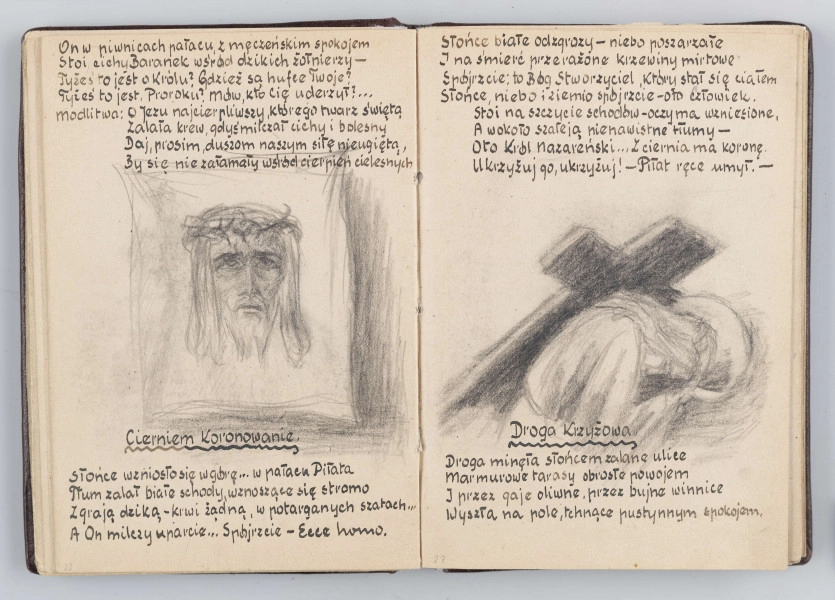 On w piwnicach pałacu, z męczeńskim spokojem
Stoi cichy Baranek wśród dzikich żołnierzy —
Tyżeś to jest o Królu? Gdzież są hufce Twoje?
Tyżeś to jest, Proroku? Mów, kto Cię uderzył?...
Modlitwa: O Jezu najcierpliwszy, którego twarz świętą
Zalała krew, gdyś milczał cichy i bolesny
Daj, prosim, duszom naszym siłę nieugiętą,
By się nie załamały wśród cierpień cielesnych
Cierniem Koronowanie.
Słońce wzniosło się w górę... w pałacu Piłata
Tłum zalał białe schody, wznoszące się stromo
Zgrają dziką – krwi żądną, w potarganych szatach...
A On milczy uparcie... Spójrzcie – Ecce homo.
Słońce białe od zgrozy – niebo poszarzałe
I na śmierć przerażone krzewiny mirtowe
Spójrzcie; to Bóg Stworzyciel, który stał się ciałem
Słońce, niebo i ziemio spójrzcie – oto człowiek.
Stoi na szczycie schodów – oczyma wzniesione,
A wokoło szaleją nienawistne tłumy –
Oto Król Nazareński... Z ciernia ma koronę.
Ukrzyżuj go, ukrzyżuj! – Piłat ręce umył. –
Droga Krzyżowa.
Droga minęła słońcem zalane ulice
Marmurowe tarasy obrosłe powojem
I przez gaje oliwne, przez bujne winnice
Wyszła na pole, tchnące pustynnym spokojem.